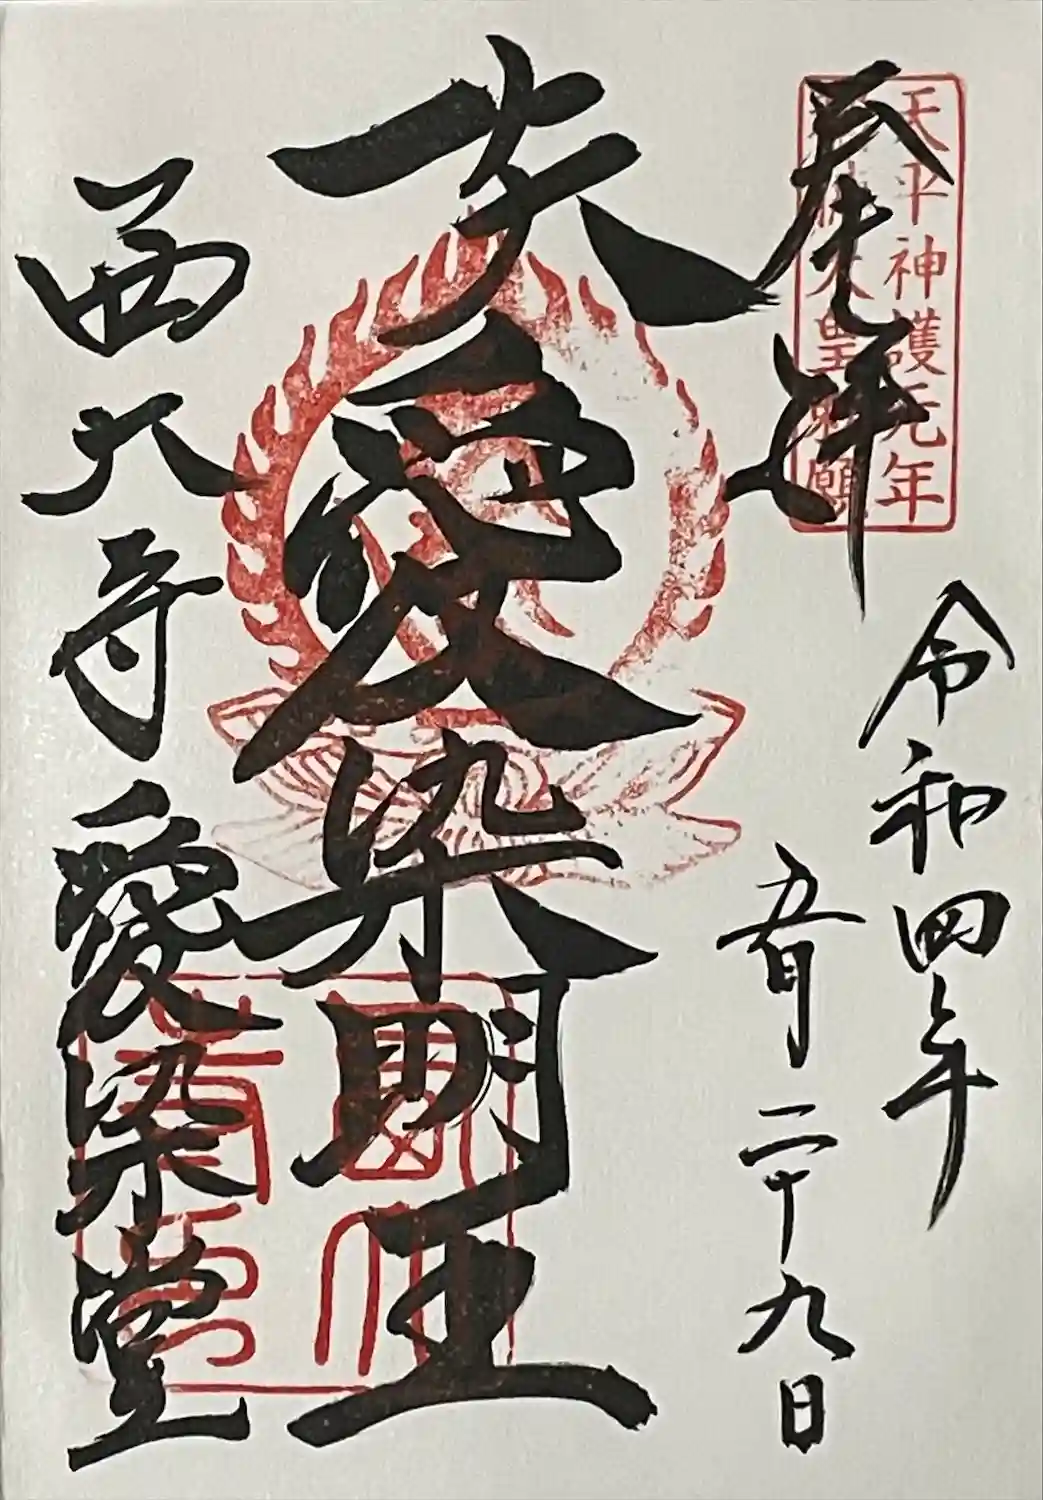 天平神護元年
天皇勅願
奉拝
令和四年
五月二十九日
大愛染明王
西大寺愛染堂
西大
寺印